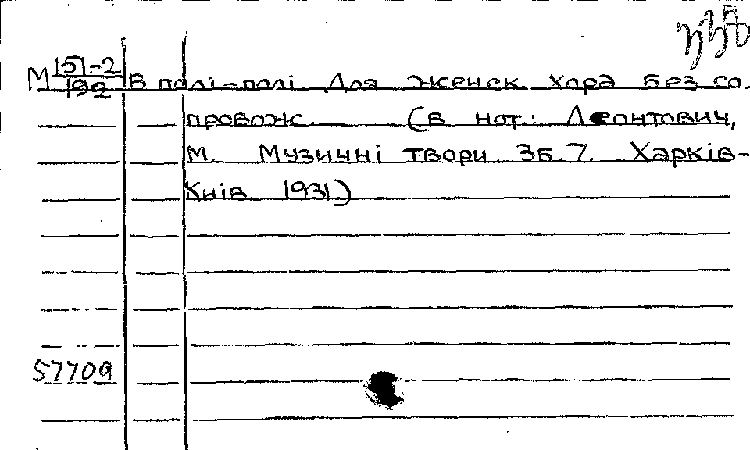 М 151-2/192 В полі-полі Для женск хора без со-
провож. (в нот: Леонтович,
М. Музичні твори Зб. 7. Харків-
Київ 1931)
57709